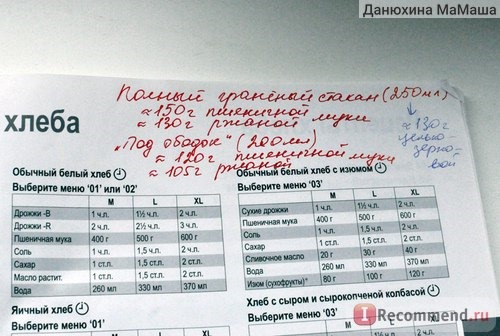 Данюхина МаМаша
Полный гранёный стакан (250 мл)
≈ 150 г пшеничной муки
≈ 130 г ржаной
≈ 130 г
цельно-
зерно-
вой
"Под ободок" (200 мл)
≈ 120 г пшеничной муки
≈ 105 г ржаной
хлеба
Обычный белый хлеб
Выберите меню '01' или '02'
M L XL
Дрожжи -В 1 ч.л. 1½ ч.л. 2 ч.л.
Дрожжи -R 2 ч.л. 2½ ч.л. 3 ч.л.
Пшеничная мука 400 г 500 г 600 г
Соль 1 ч.л. 1,5 ч.л. 2 ч.л.
Сахар 1 ст.л. 1,5 ст.л. 2 ст.л.
Масло растит. 1 ст.л. 1,5 ст.л. 2 ст.л.
Вода 260 мл 330 мл 370 мл
Яичный хлеб
Выберите меню '01'
M L XL
Обычный белый хлеб с изюмом
Выберите меню '03'
M L XL
Сухие дрожжи 1 ч.л. 1½ ч.л. 2 ч.л.
Пшеничная мука 400 г 500 г 600 г
Соль 1 ч.л. 1½ ч.л. 2 ч.л.
Сахар 1 ст.л. 1,5 ст.л. 2 ст.л.
Сливочное масло 20 г 30 г 40 г
Вода 260 мл 330 мл 370 мл
Изюм (сухофрукты)* 80 г 100 г 120 г
Хлеб с сыром и сырокопченой колбасой
Выберите меню '03'
IRecommend.ru